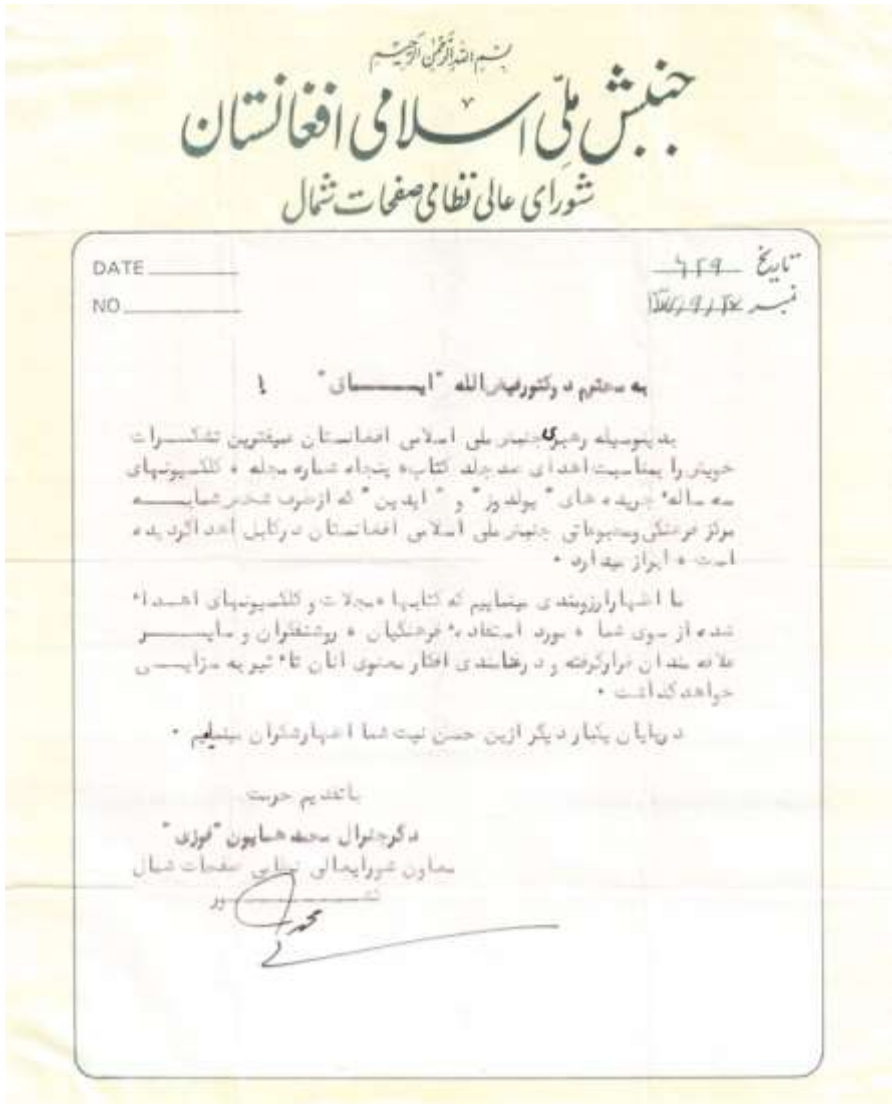 بسم الله الرحمن الرحیم
جنبش ملّی اسلامی افغانستان
شورای عالی نظامی صفحات شمال
DATE
تاریخ ۶۲۹
NO.
نمبر
به محترم دکتور فیض‌الله "ایمـــــاق" !
بدینوسیله رهبری جنبش ملی اسلامی افغانستان عمیقترین تشکــــرات
خویش را بمناسبت اهدای صد جلد کتاب، پنجاه شماره مجله ، کلکسیونهای
سه سالهٔ جریده های "یولدوز" و "آیدین" که از طرف شخص شمابــــه
مرکز فرهنگی ومطبوعاتی جنبش ملی اسلامی افغانستان درکابل اهداگردیده
است ، ابراز میدارد .
با اظهارارزومندی مینماییم که کتابها ،مجلات و کلکسیونهای اهـــداء
شده از سوی شما ، مورد استفادهٔ فرهنگیان ، روشنفکران و سایـــــر
علاقه مندان قرارگرفته و در غنامندی افکار معنوی آنان تاءثیر به سزایـــی
خواهد گذاشت .
درپایان یکبار دیگر ازین حسن نیت شما اظهارشکران مینماییم .
باتقدیم حرمت
دگرجنرال محمد همایون "فوزی"
معاون شورایعالی نظامی صفحات شمال
کشـــــــــور